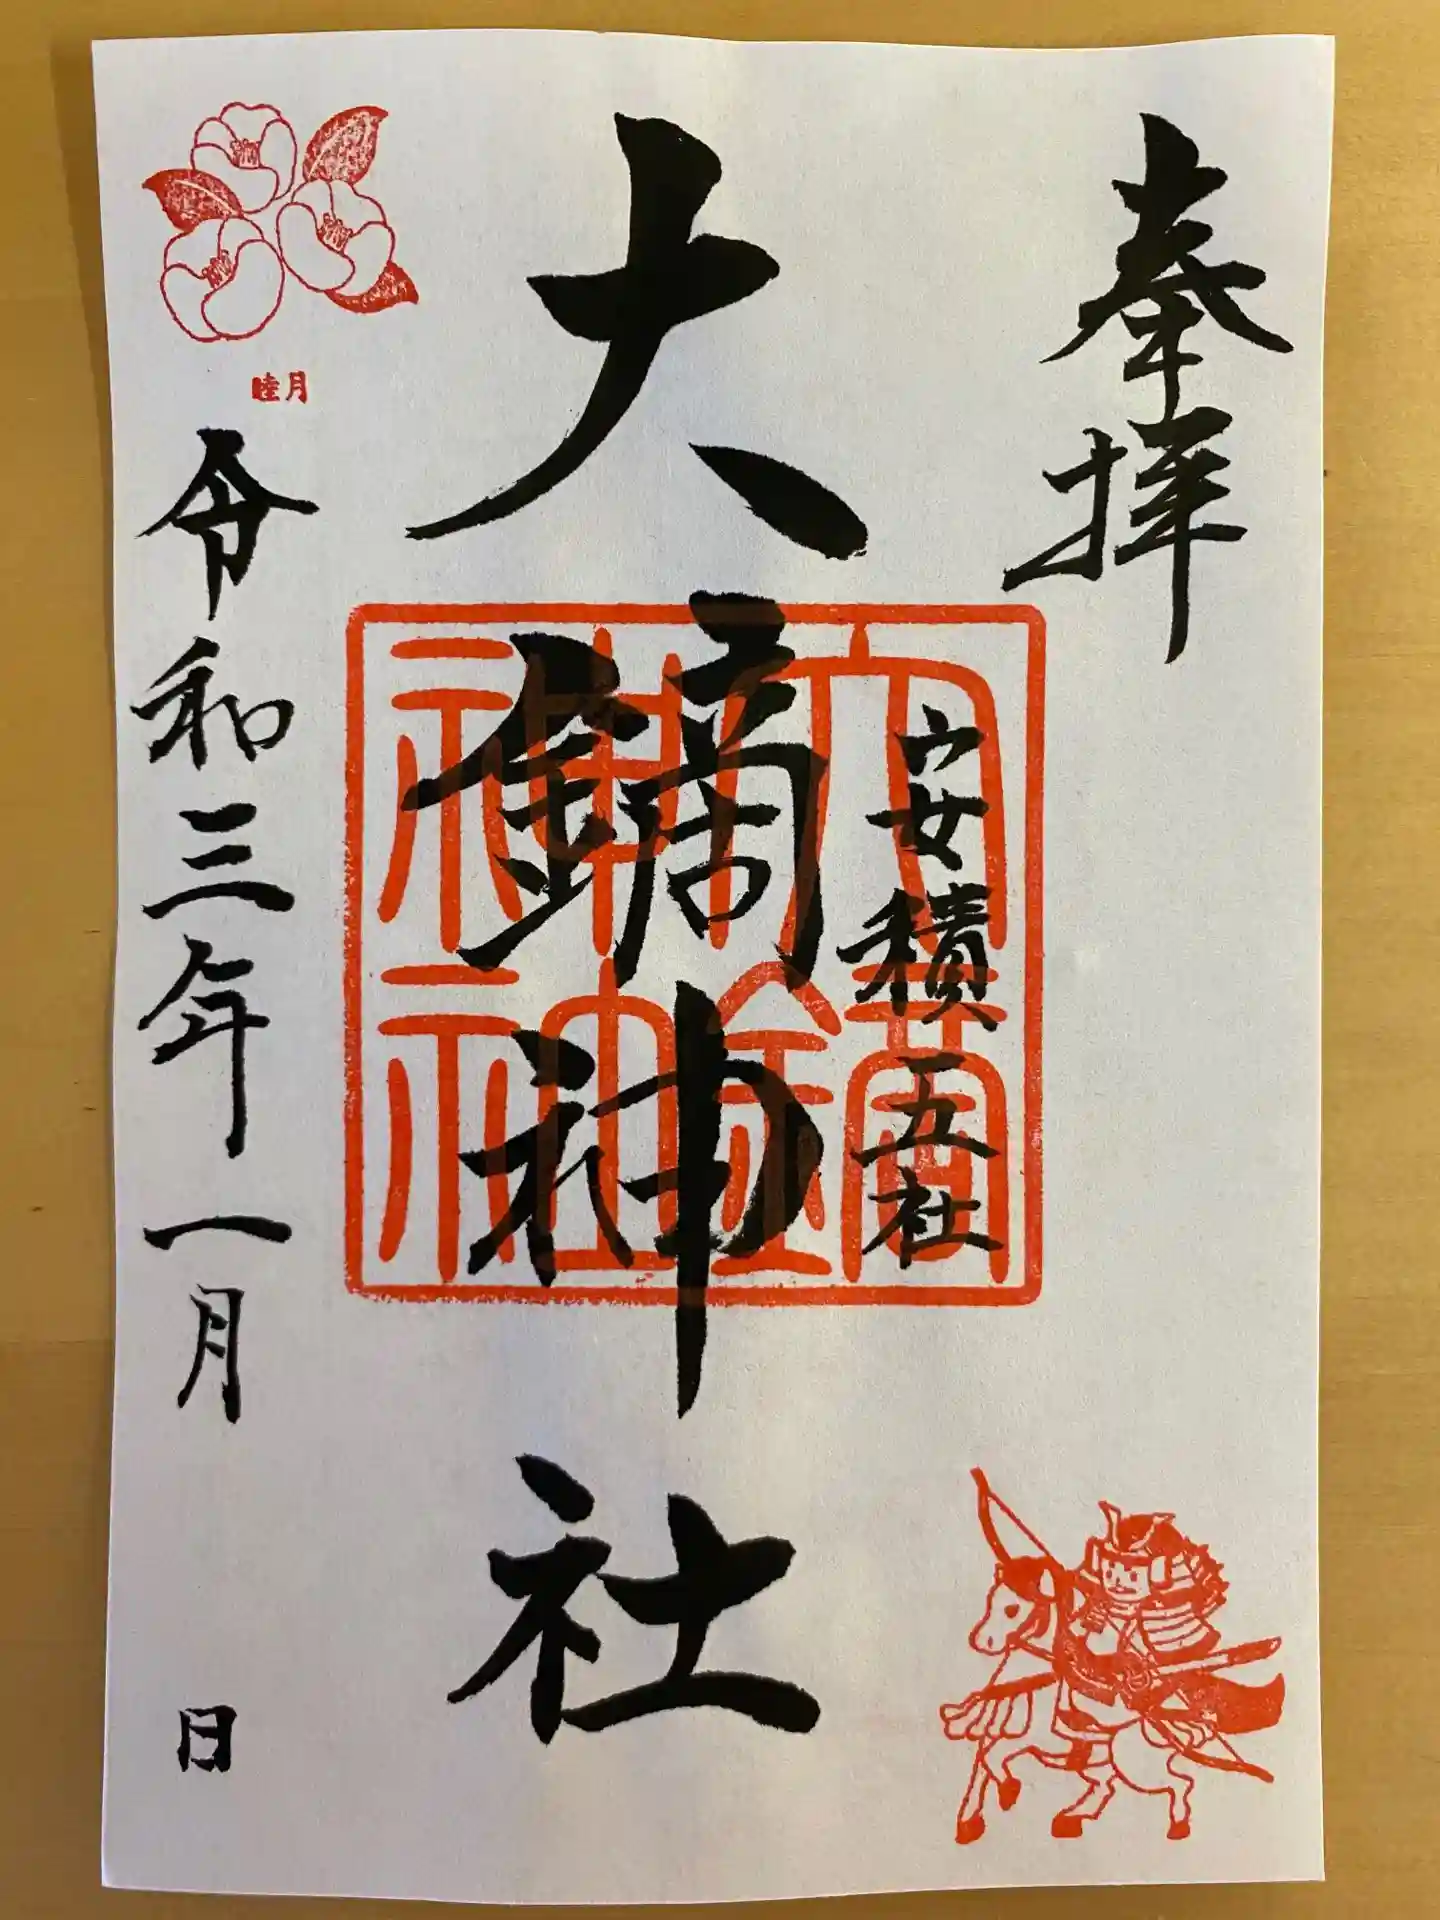 奉拝
安積五社
大鏑神社
大鏑神社
睦月
令和三年一月 日